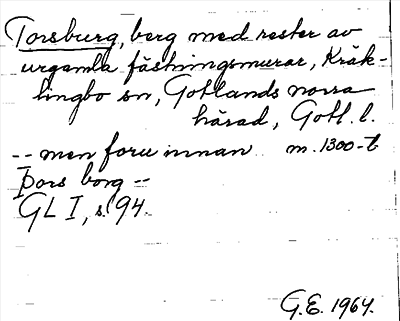 Torsburg, berg med rester av
urgamla fästningsmurar, Kräk-
lingbo sn, Gotlands norra
härad, Gotl. l.
-- men foru innan m. 1300-t
Þors borg --
GL I, s. 94.
G.E. 1964.